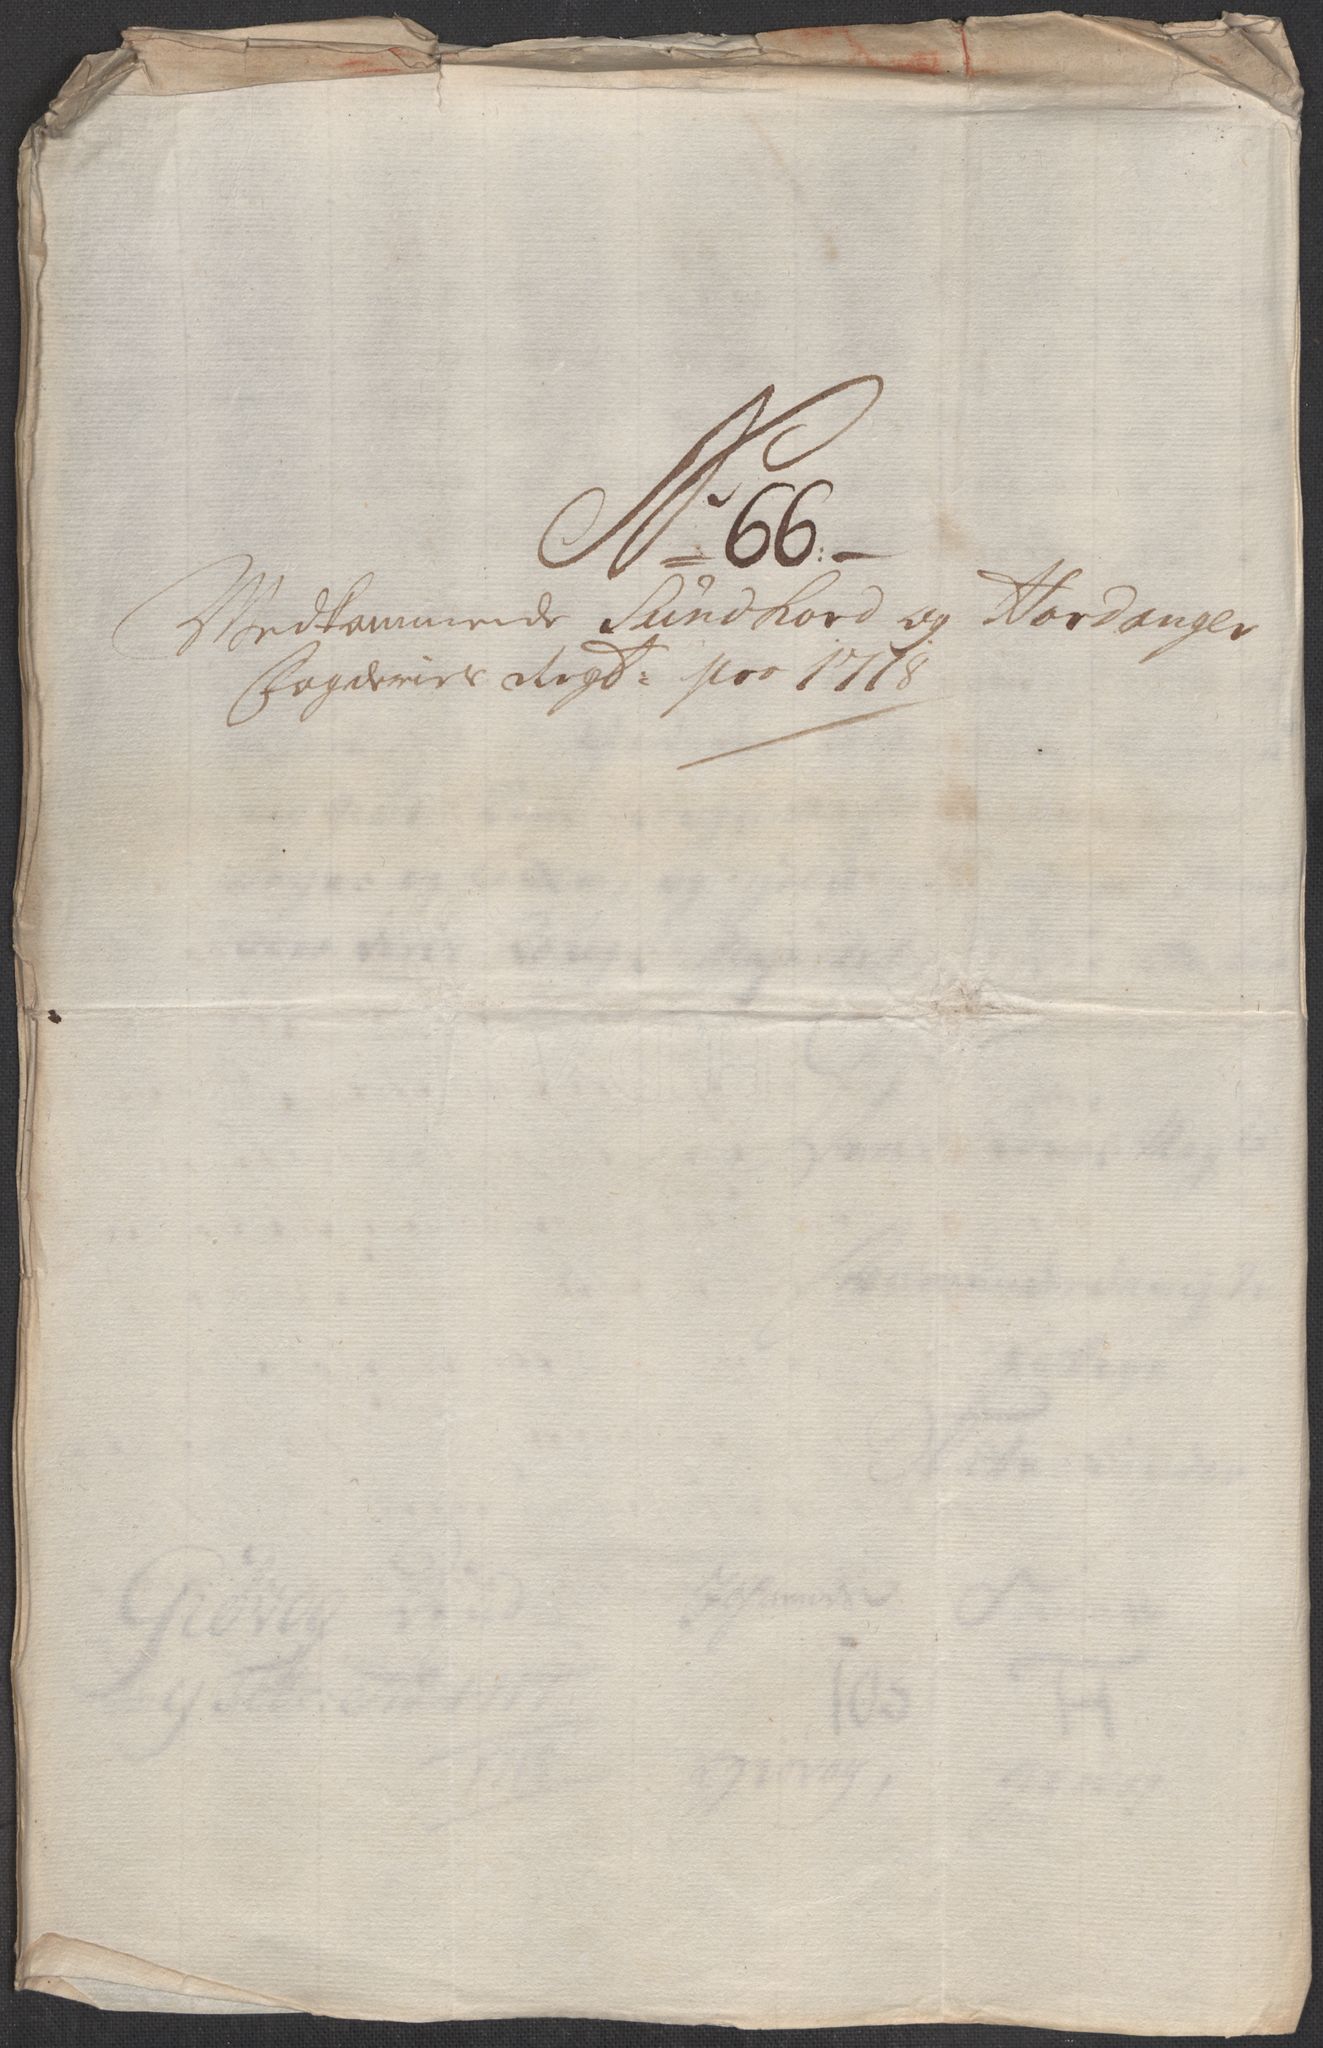 No 66:-
Vedkommende Sundhord og Hardanger
Fogderies Regsb: pro 1718